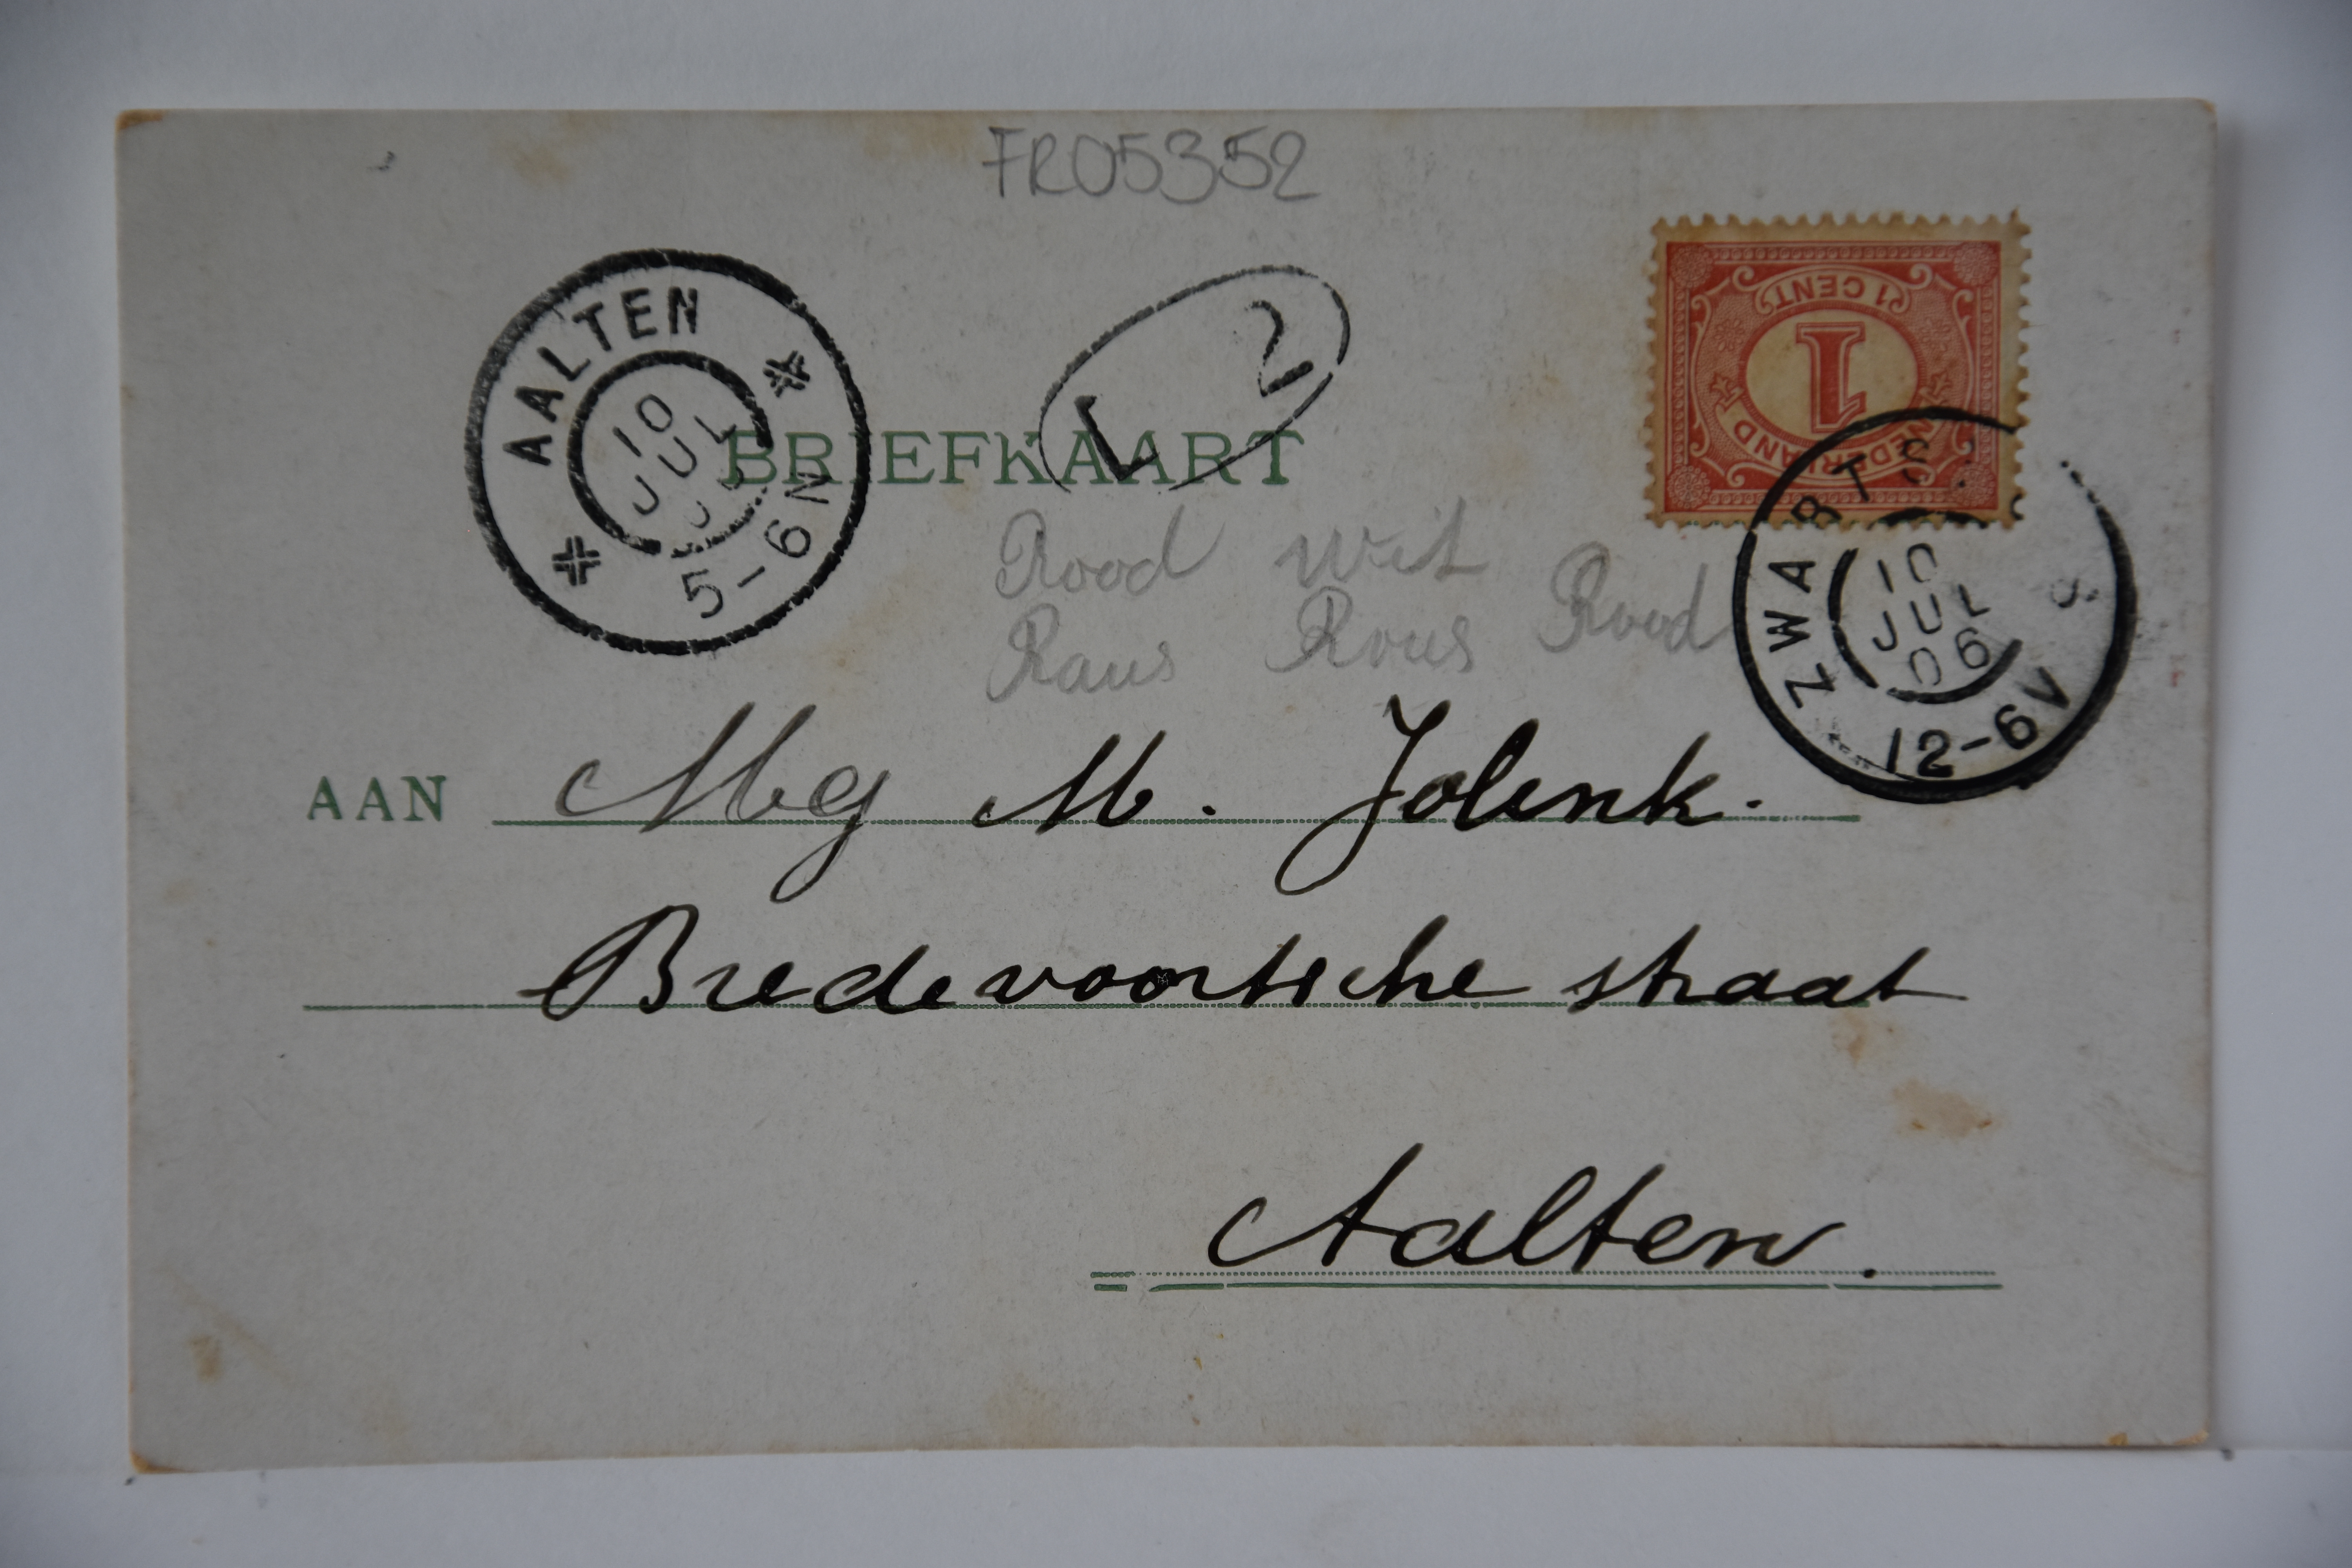 FR05352
AALTEN
10
JUL
5-6N
L 2
1 CENT
1
NEDERLAND
BRIEFKAART
10
JUL
06
12-6V
Rood Wit Rood
Raus Rous
AAN Mej M. Jolink.
Bredevoortsche straat
Aalten.